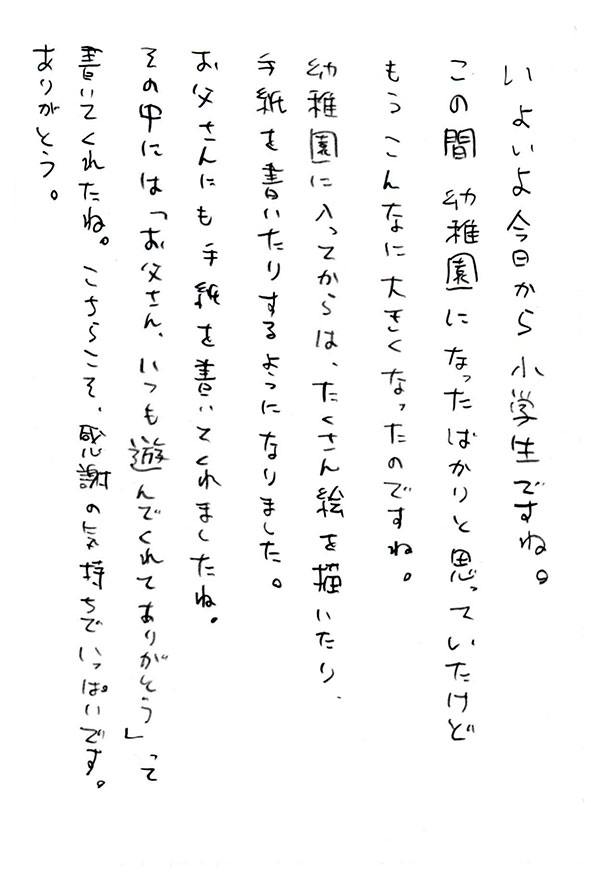 いよいよ今日から小学生ですね。
この間幼稚園になったばかりと思っていたけど
もうこんなに大きくなったのですね。
幼稚園に入ってからは、たくさん絵を描いたり、
手紙を書いたりするようになりました。
お父さんにも手紙を書いてくれましたね。
その中には「お父さん、いつも遊んでくれてありがとう」って
書いてくれたね。こちらこそ、感謝の気持ちでいっぱいです。
ありがとう。